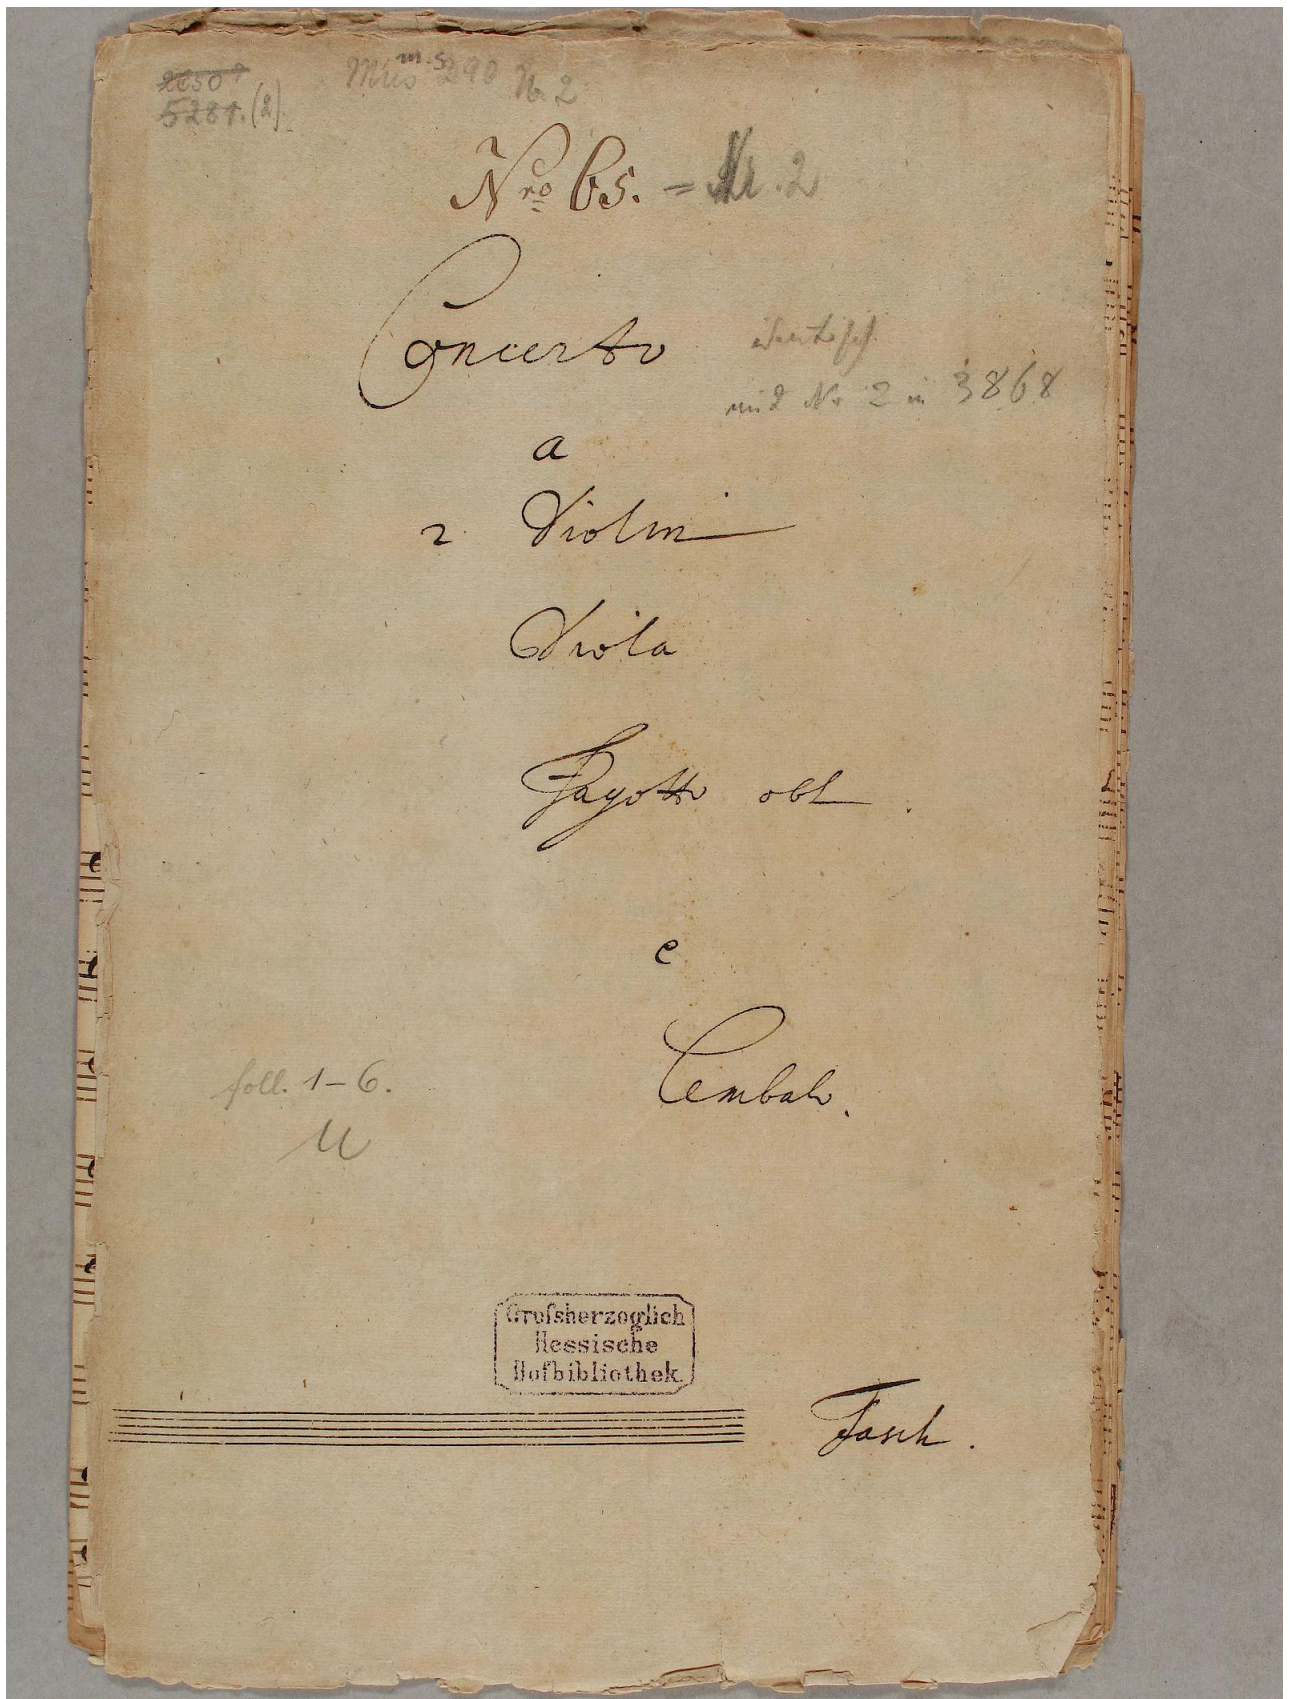 Mus. ms. 290 Nr. 2
5281. (2).
Nro 65. = Nr. 2
Concerto
identisch
mit Nr 2 in 3868
a
2. Violin
Viola
Fagotto obl
e
Cembalo.
foll. 1-6.
Groſsherzoglich
Hessische
Hofbibliothek.
Fasch.